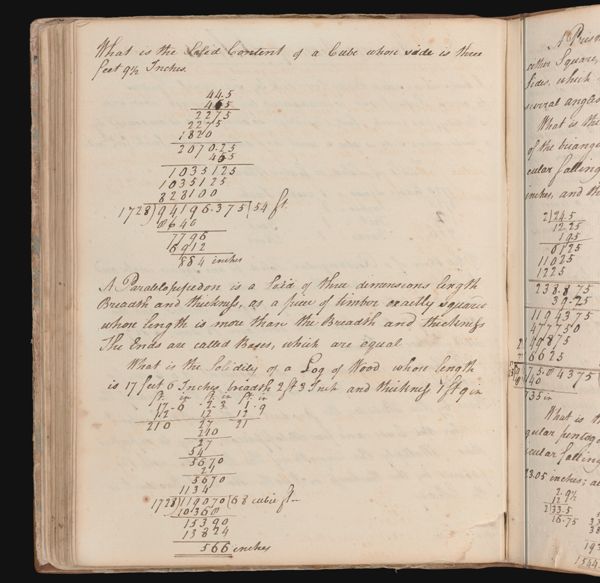 What is the Solid Content of a Cube whose side is three
feet 9½ Inches
45.5
45.5
2275
2275
1820
2070.25
45.5
1035125
1035125
828100
1728)94196.375(54 ft
8640
7796
6912
884 inches
A Paralelopipedon is a Solid of three dimensions length
Breadth and thickness, as a piece of timber exactly square
whose length is more than the Breadth and thickness
The Ends are called Bases, which are equal
What is the Solidity of a Log of Wood whose length
is 17 feet 6 Inches breadth 2 ft 3 Inch and thickness 1 ft 9 in
ft in ft in ft in
17-6 2-3 1-9
12 12 12
210 27 21
210
27
54
5670
21
5670
1134
1728)119070(68 cubic ft
10368
15390
13824
566 inches
A Pris
either Square,
sides, which
several angles
What is the
of the triang
cular falling
inches, and th
2)24.5
12.25
19.5
6125
11025
1225
238.875
39.25
1194375
477750
What is th
gular pentag
cular falling
23.05 inches; a
2)33.5
16.75